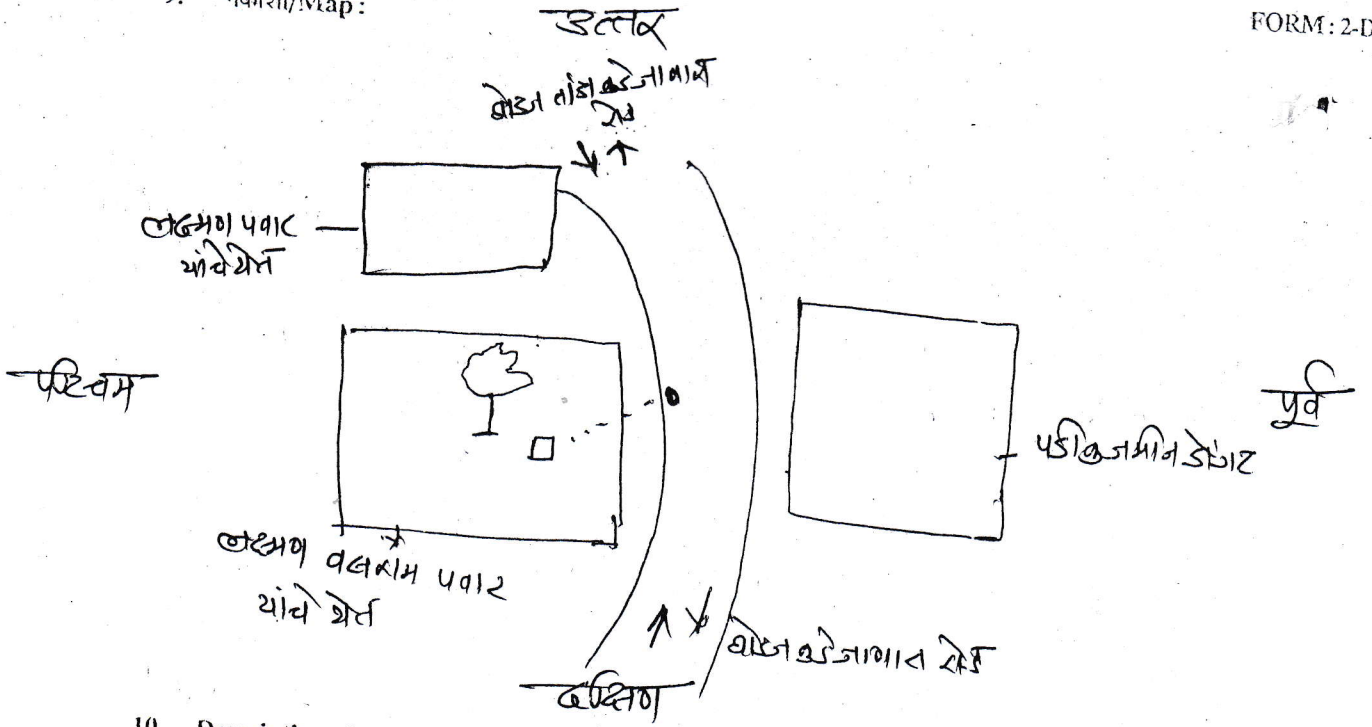 नकाशा/Map :
FORM : 2-D
उत्तर
तांडा कडे जाणारा
रोड
लक्ष्मण पवार
यांचे शेत
पश्चिम
पूर्व
जमीन डोंगर
लक्ष्मण बळीराम पवार
यांचे शेत
कडे जाणारा रोड
दक्षिण
10.